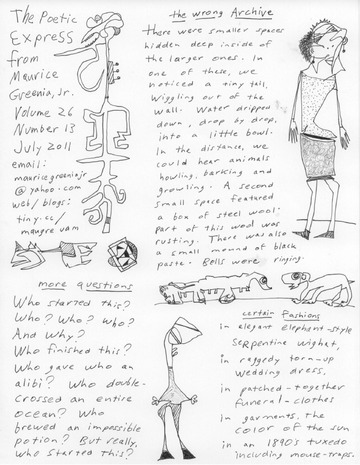 The Poetic
Express
from
Maurice
Greenia, Jr.
Volume 26
Number 13
July 2011
email:
mauricegreeniajr
@yahoo.com
web/blogs:
tiny.cc/
maugre
the wrong Archive
There were smaller spaces
hidden deep inside of
the larger ones. In
one of these, we
noticed a tiny tail,
wiggling out of the
wall. Water dripped
down, drop by drop,
into a little bowl.
In the distance, we
could hear animals
howling, barking and
growling. A second
small space featured
a box of steel wool.
Part of this wool was
rusting. There was also
a small mound of black
paste. Bells were ringing.
more questions
Who started this?
Who? Who? Who?
And why?
Who finished this?
Who gave who an
alibi? Who double-
crossed an entire
ocean? Who
brewed an impossible
potion? But really,
who started this?
certain Fashions
in elegant elephant-style
serpentine
in raggedy torn-up
wedding dress,
in patched-together
funeral-clothes
in garments, the
color of the sun
in an 1890's tuxedo
including mouse-traps.